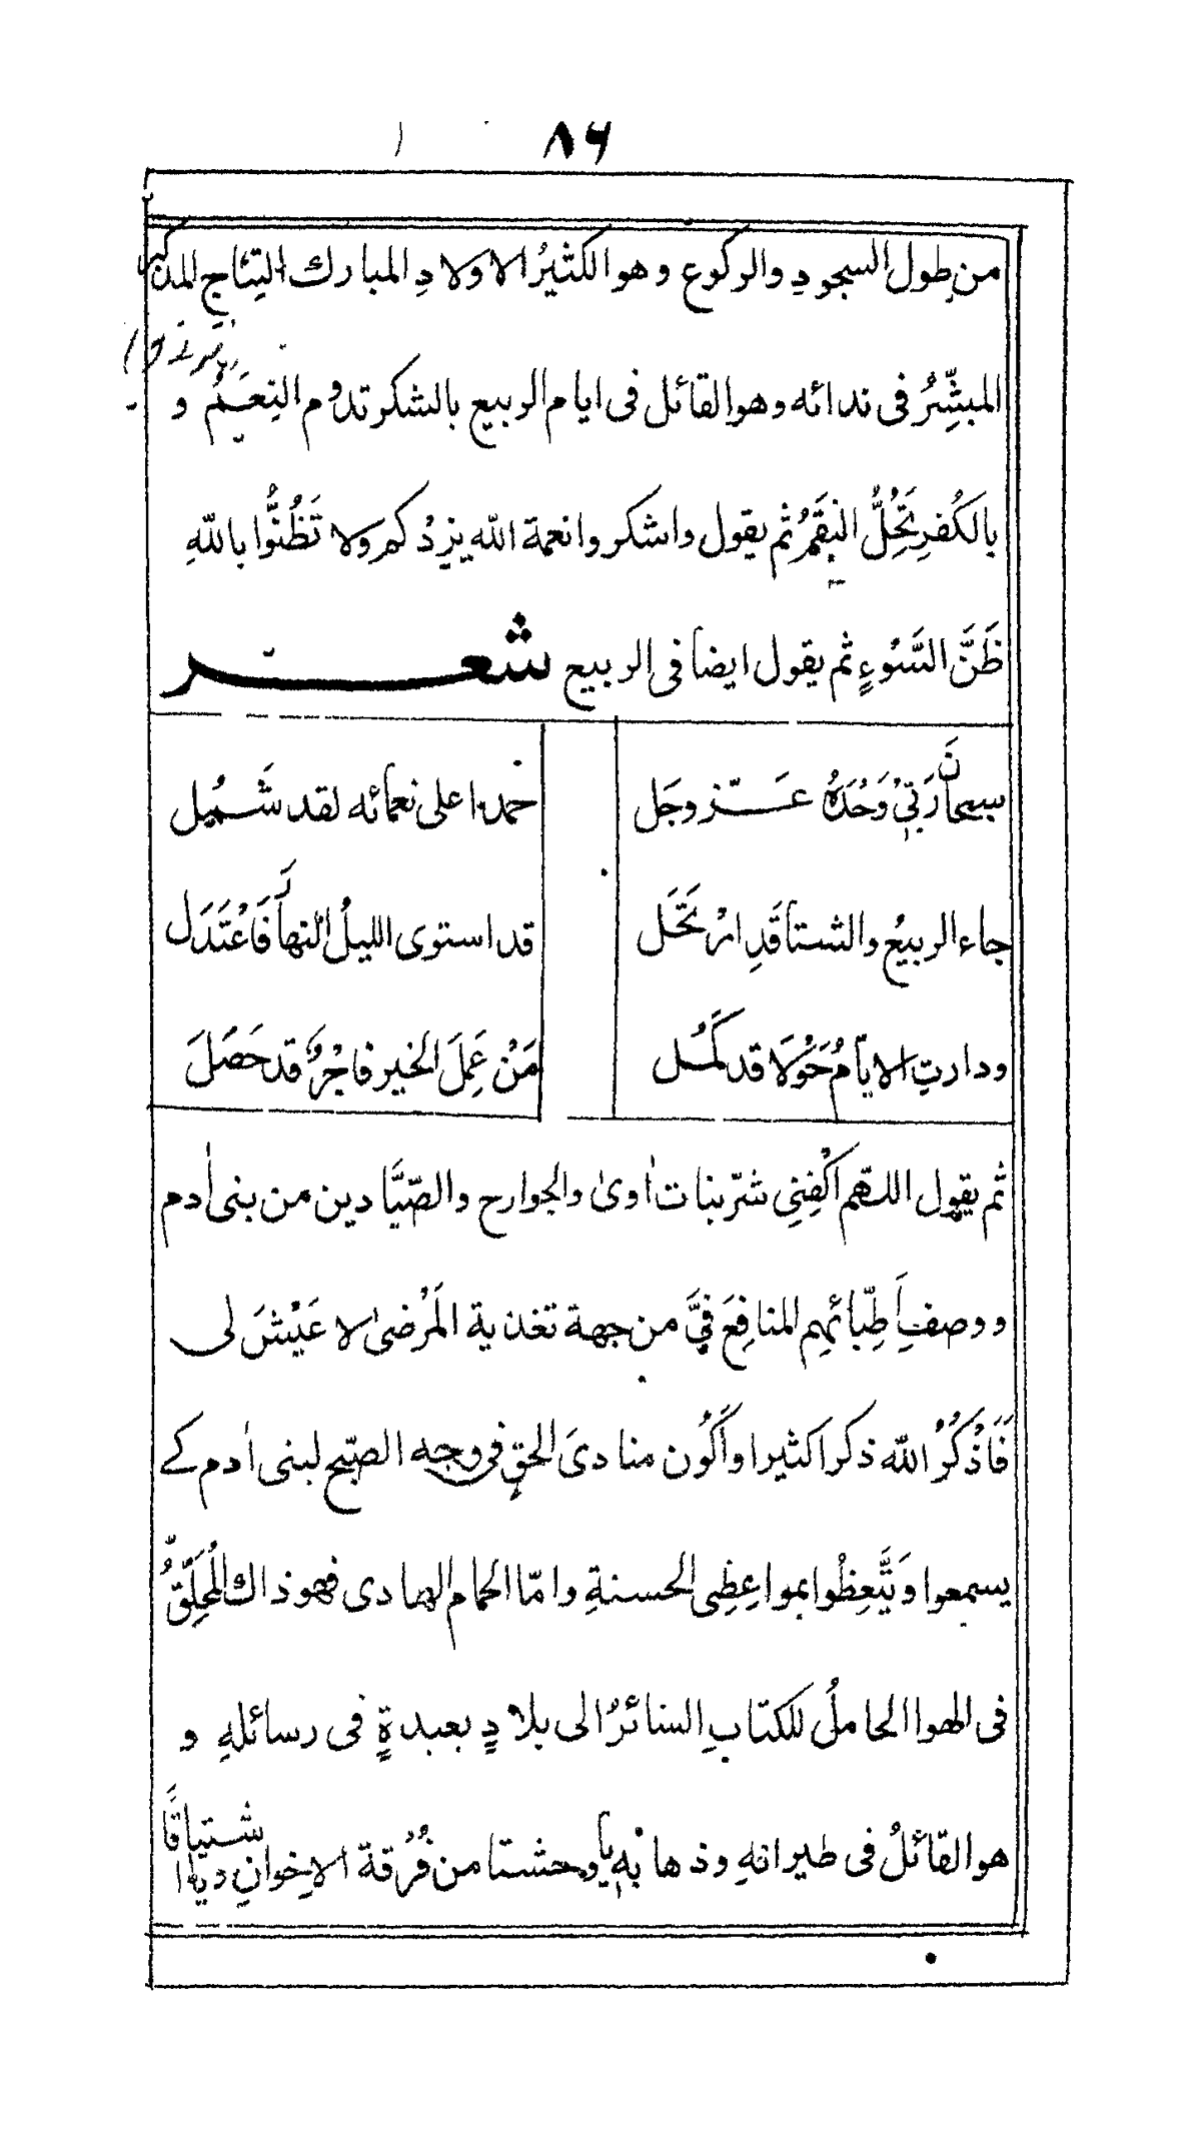 ٨٦
من طول السجودِ والركوع وهو الكثيرُ الاولادِ المبارك النِتاج المذكر
المبشِّرُ فى ندائه وهو القائل فى ايام الربيع بالشكر تدوم النِعَمُ و
بالكُفرِ تَحُلُّ النِقَمُ ثم يقول واشكروا نعمة الله يزدْكم ولا تَظُنُّوا باللهِ
ظَنَّ السَّوْءِ ثم يقول ايضا فى الربيع شعر
سبحانَ رَبّيْ وَحْدَهُ عَزّ وجَل حمدا على نعمائه لقد شَمُل
جاء الربيعُ والشتا قَدِ ارْتَحَل قد استوى الليلُ النهارَ فَاعْتَدَل
ودارتِ الايّامُ حَوْلا قد كَمُل مَنْ عَمِلَ الخير فاجْرُهُ قد حَصَلَ
ثم يقول اللهم اكْفِنِى شرّ بنات اٰوىٰ والجوارح والصّيَّادين من بنى اٰدم
ووصفِ اَطِبّائهِم المنافِعَ فِيَّ من جهة تغذية المَرْضىٰ لا عَيْشَ لى
فَاَذْكُرُ الله ذكرا كثيرا واَكُون منادىَ الحقِ فى وجه الصبّح لبنى اٰدم كے
يسمعوا وَيَتَّعِظُوا بمواعِظِى الحسنةِ وامّا الحمام الهادى فهو ذاك المُحَلِّقُ
فى الهوا الحاملُ للكتابِ السائرُ الى بلادٍ بعيدةٍ فى رسائلهِ و
هو القائلُ فى طيرانهِ وذهابهِ يا وحشتا من فُرْقة الاِخوانِ ويا اشتياقًا